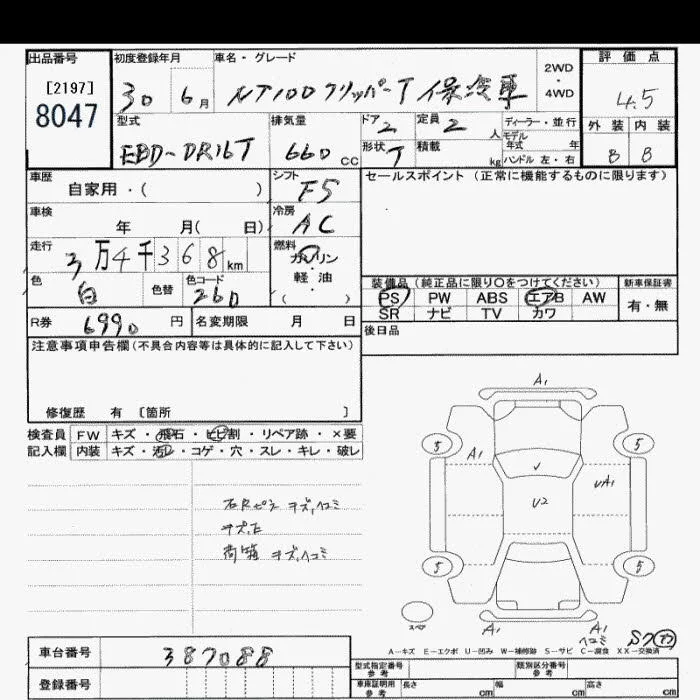 出品番号 初度登録年月 車名・グレード 評価点
[2197] 8047 30 6月 NT100クリッパーT 保冷車 2WD・4WD 4.5
型式 排気量 ドア 2 定員 2人 ディーラー・並行 外装 内装
EBD-DR16T 660cc 形状 T 積載 kg モデル年式 年 ハンドル 左・右 B B
車歴 自家用・( ) シフト F5 セールスポイント(正常に機能するものに限ります)
車検 年 月( 日) 冷房 AC
走行 3万4千368km 燃料 ガソリン・軽油・( )
色 白 色替 色コード 260 装備品(純正品に限り○をつけてください) 新車保証書
PS PW ABS エアB AW 有・無
SR ナビ TV カワ
R券 6990円 名変期限 月 日 後日品
注意事項申告欄(不具合内容等は具体的に記入して下さい)
修復歴 有 [箇所 ]
検査員 FW キズ・飛石・ヒビ割・リペア跡・×要
記入欄 内装 キズ・汚レ・コゲ・穴・スレ・キレ・破レ
A1
5 A1 5
✓ UA1
U2
キズ、ヘコミ
荷箱 キズ、ヘコミ
5 5
スペア A1 A1
ヘコミ
A-キズ E-エクボ U-凹み W-補修跡 S-サビ C-腐食 XX-交換済
車台番号 387088
登録番号
型式指定番号 参考 類別区分番号 参考
車庫証明用 参考 長さ cm 幅 cm 高さ cm